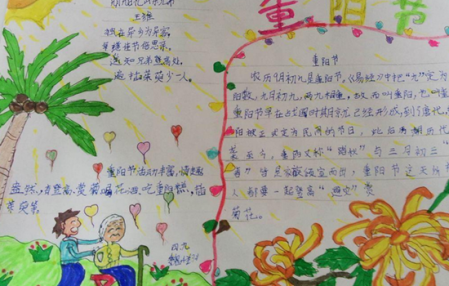 重阳节
王维
独在异乡为异客
每逢佳节倍思亲
遥知兄弟登高处
遍插茱萸少一人。
重阳节
农历九月初九是重阳节，《易经》中把“九”定为
阳数，九月初九，两九相重，故而叫重阳，也叫重
重阳节早在战国时期就已经形成，到了唐代，
阳被正式定为民间的节日，此后历朝历代
至今，重阳又称“踏秋”与三月初三“
春”皆是家族
重阳节这天所有
人都要一起登高“避灾”
菊花。
重阳节活动丰富，情趣
盎然，有登高、赏菊、喝花酒、吃重阳糕、插
茱萸等。